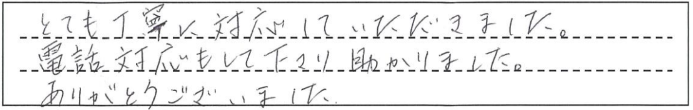 とても丁寧に対応していただきました。
電話対応もして下さり助かりました。
ありがとうございました